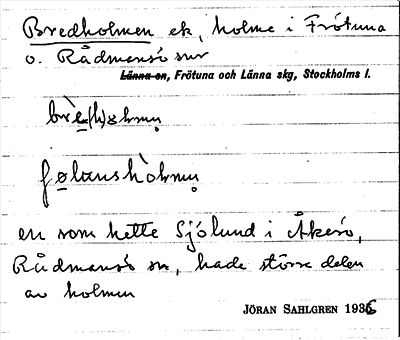 Bredholmen ek, holme i Frötuna
o. Rådmansö snr
Länna sn, Frötuna och Länna skg, Stockholms l.
en som hette Sjölund i Åkerö,
Rådmansö sn, hade större delen
av holmen
JÖRAN SAHLGREN 1936